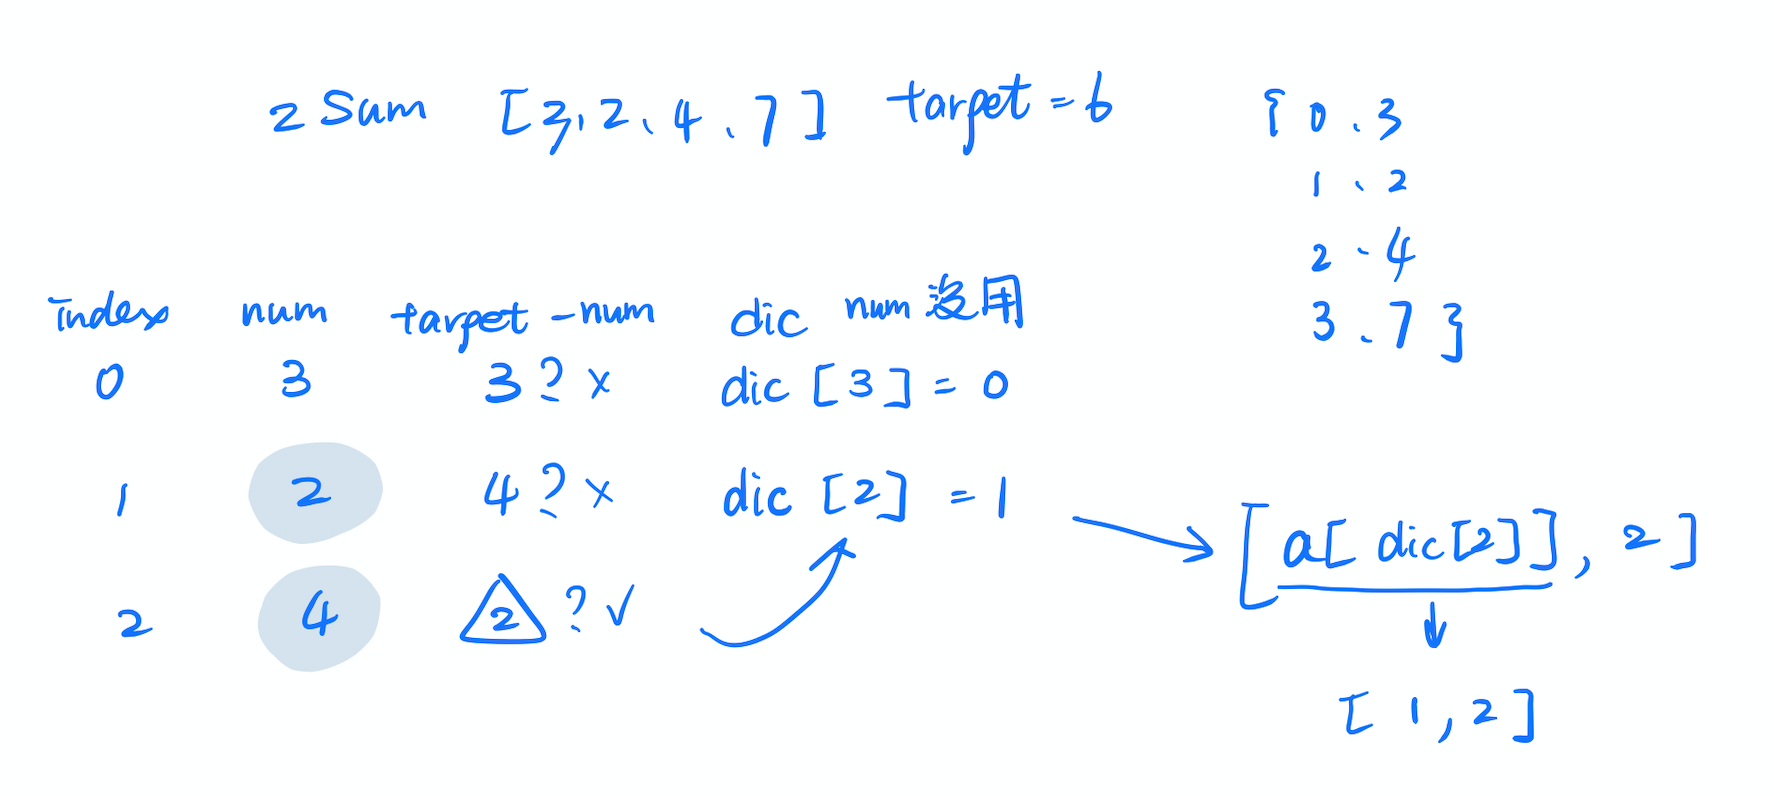 2 Sum [3, 2、4、7] target = 6
{ 0、3
1、2
2、4
3、7 }
index num target - num dic num 沒用
0 3 3 ? x dic [3] = 0
1 2 4 ? x dic [2] = 1
2 4 2 ? ✓
[a[dic[2]], 2]
[1, 2]